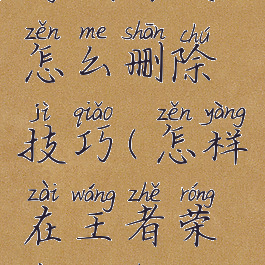 zěn me shān chú
怎么删除
jì qiǎo ( zěn yàng
技巧(怎样
zài wáng zhě róng
在王者荣